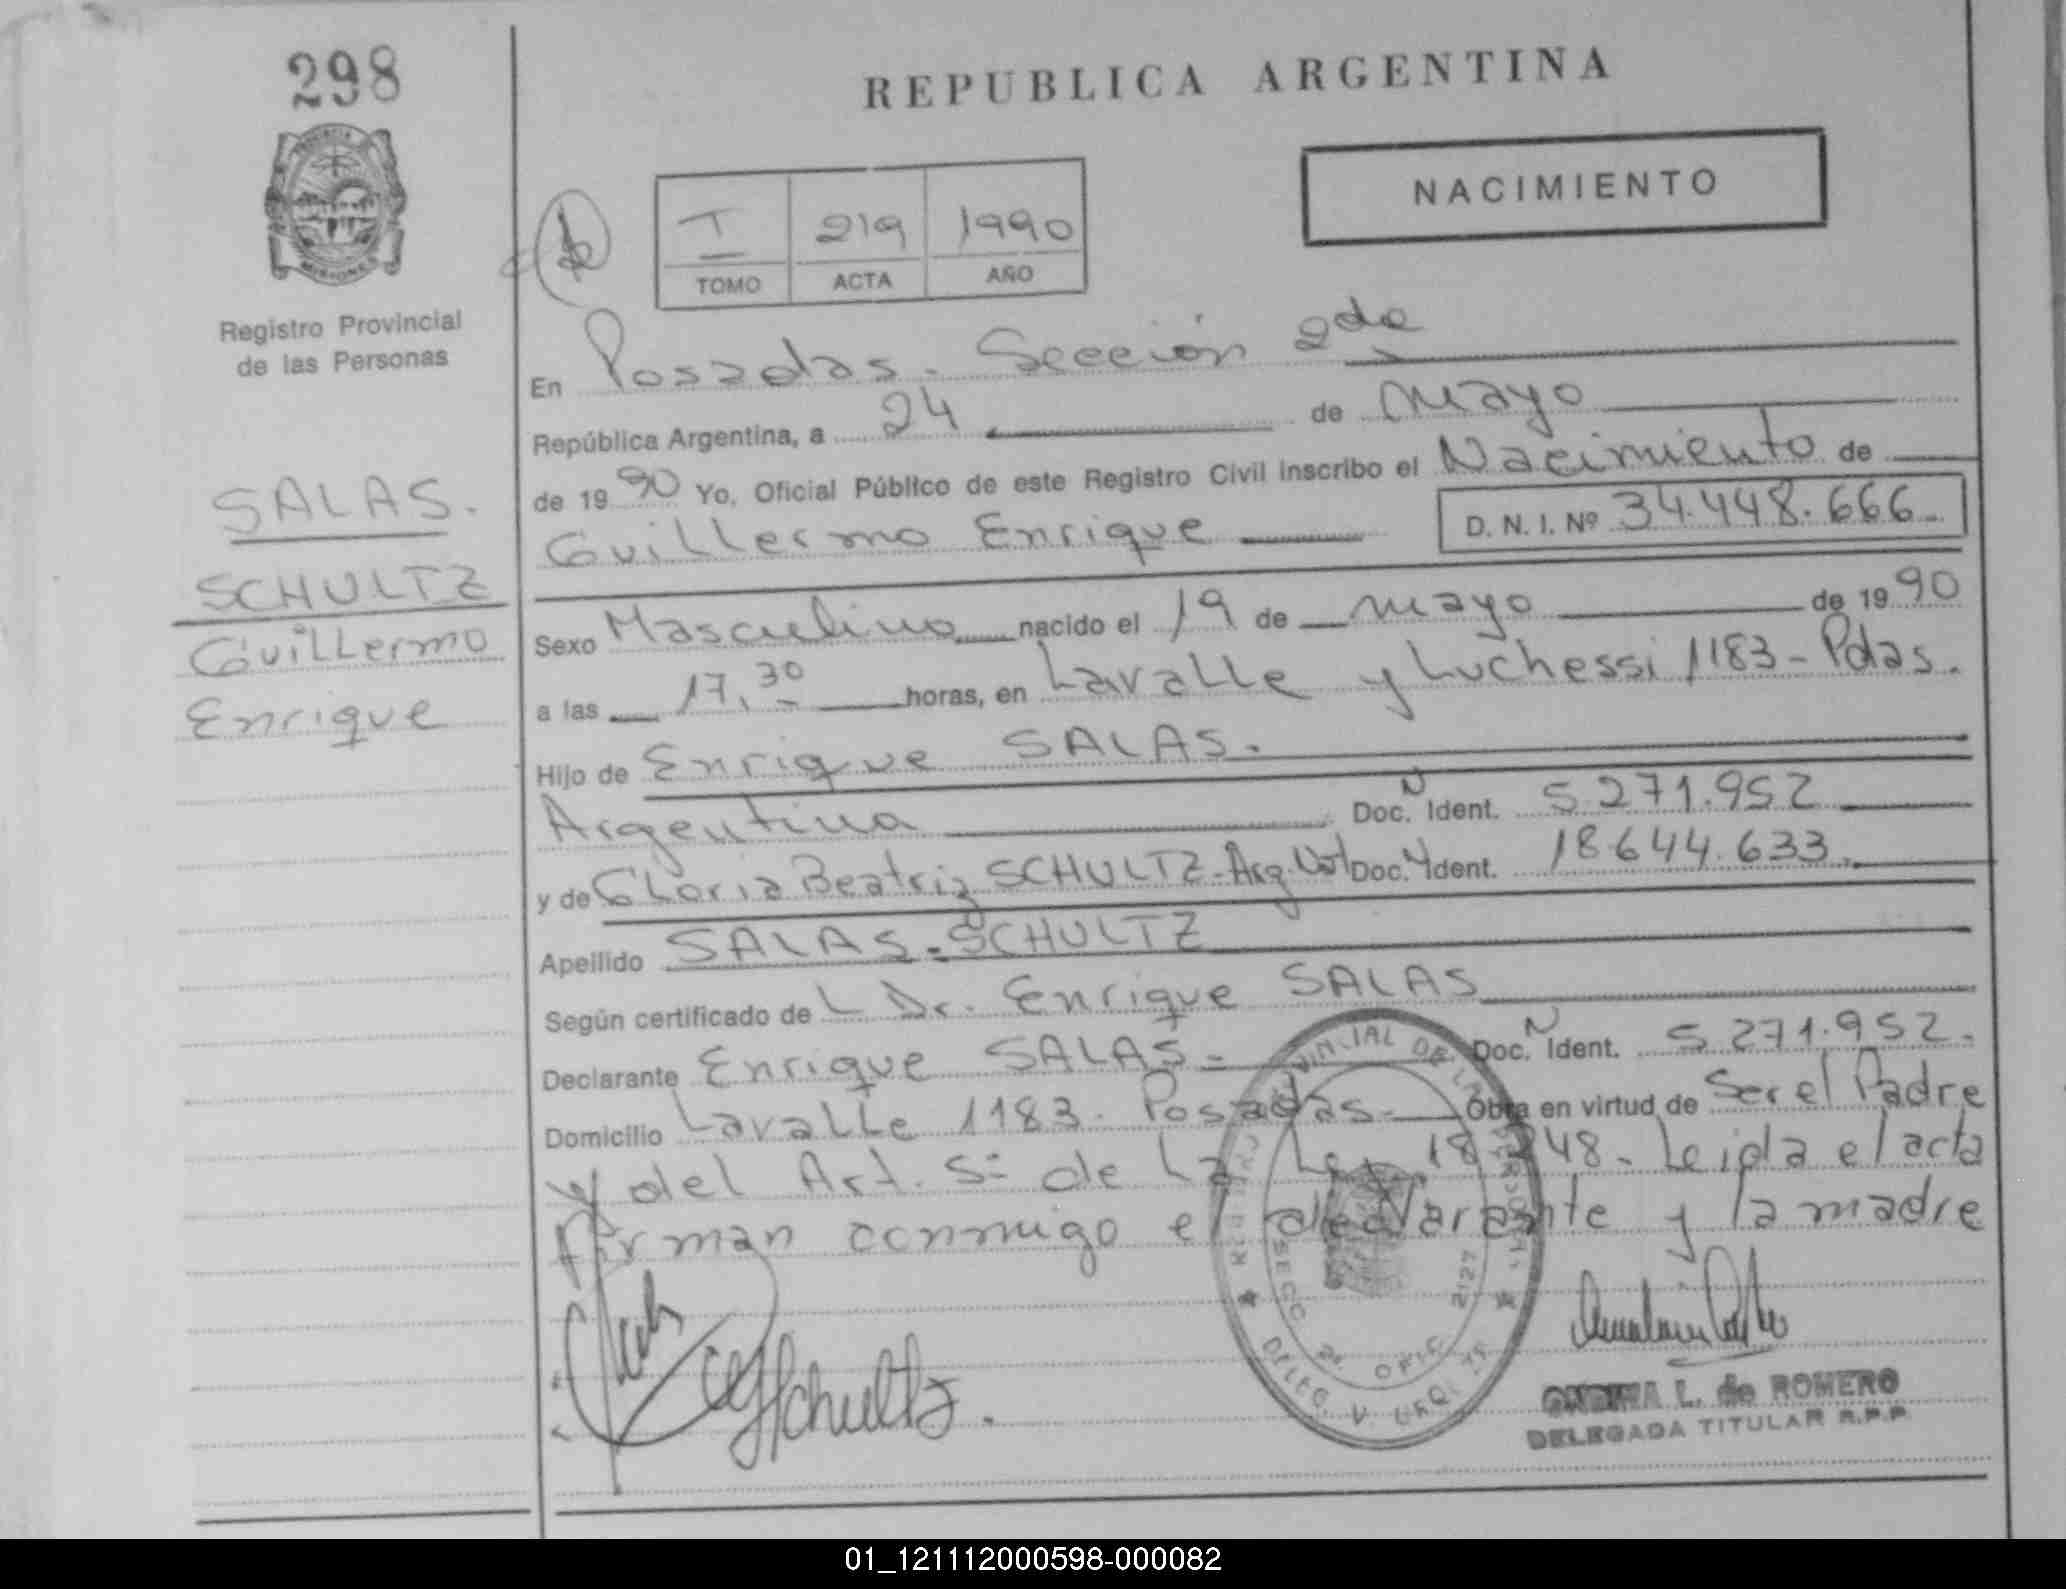 298
REPUBLICA ARGENTINA
NACIMIENTO
PROVINCIA
MISIONES
Registro Provincial
de las Personas
I 219 1990
TOMO ACTA AÑO
SALAS.
SCHULTZ
Guillermo
Enrique
En Posadas - Sección 2da
República Argentina, a 24 de mayo
de 1990 Yo, Oficial Público de este Registro Civil inscribo el Nacimiento de
Guillermo Enrique D. N. I. Nº 34.448.666.-
Sexo Masculino nacido el 19 de mayo de 1990
a las 17.30 horas, en Lavalle y Luchessi 1183 - Pdas.
Hijo de Enrique SALAS.
Argentina Doc. N Ident. 5.271.952
y de Gloria Beatriz SCHULTZ - Arg. Doc. Ident. 18.644.633.
Apellido SALAS - SCHULTZ
Según certificado de L Dr. Enrique SALAS
Declarante Enrique SALAS - Doc. N Ident. 5.271.952.
Domicilio Lavalle 1183 - Posadas - Obra en virtud de Ser el Padre
y del Art. 5º de La Ley 18.248 - Leida el acta
firman conmigo el declarante y la madre
Schultz.
SECC 2ª. OFIC. 2127
DELEG. V. URQUIZA
L. de ROMERO
DELEGADA TITULAR R.P.P.
01_121112000598-000082